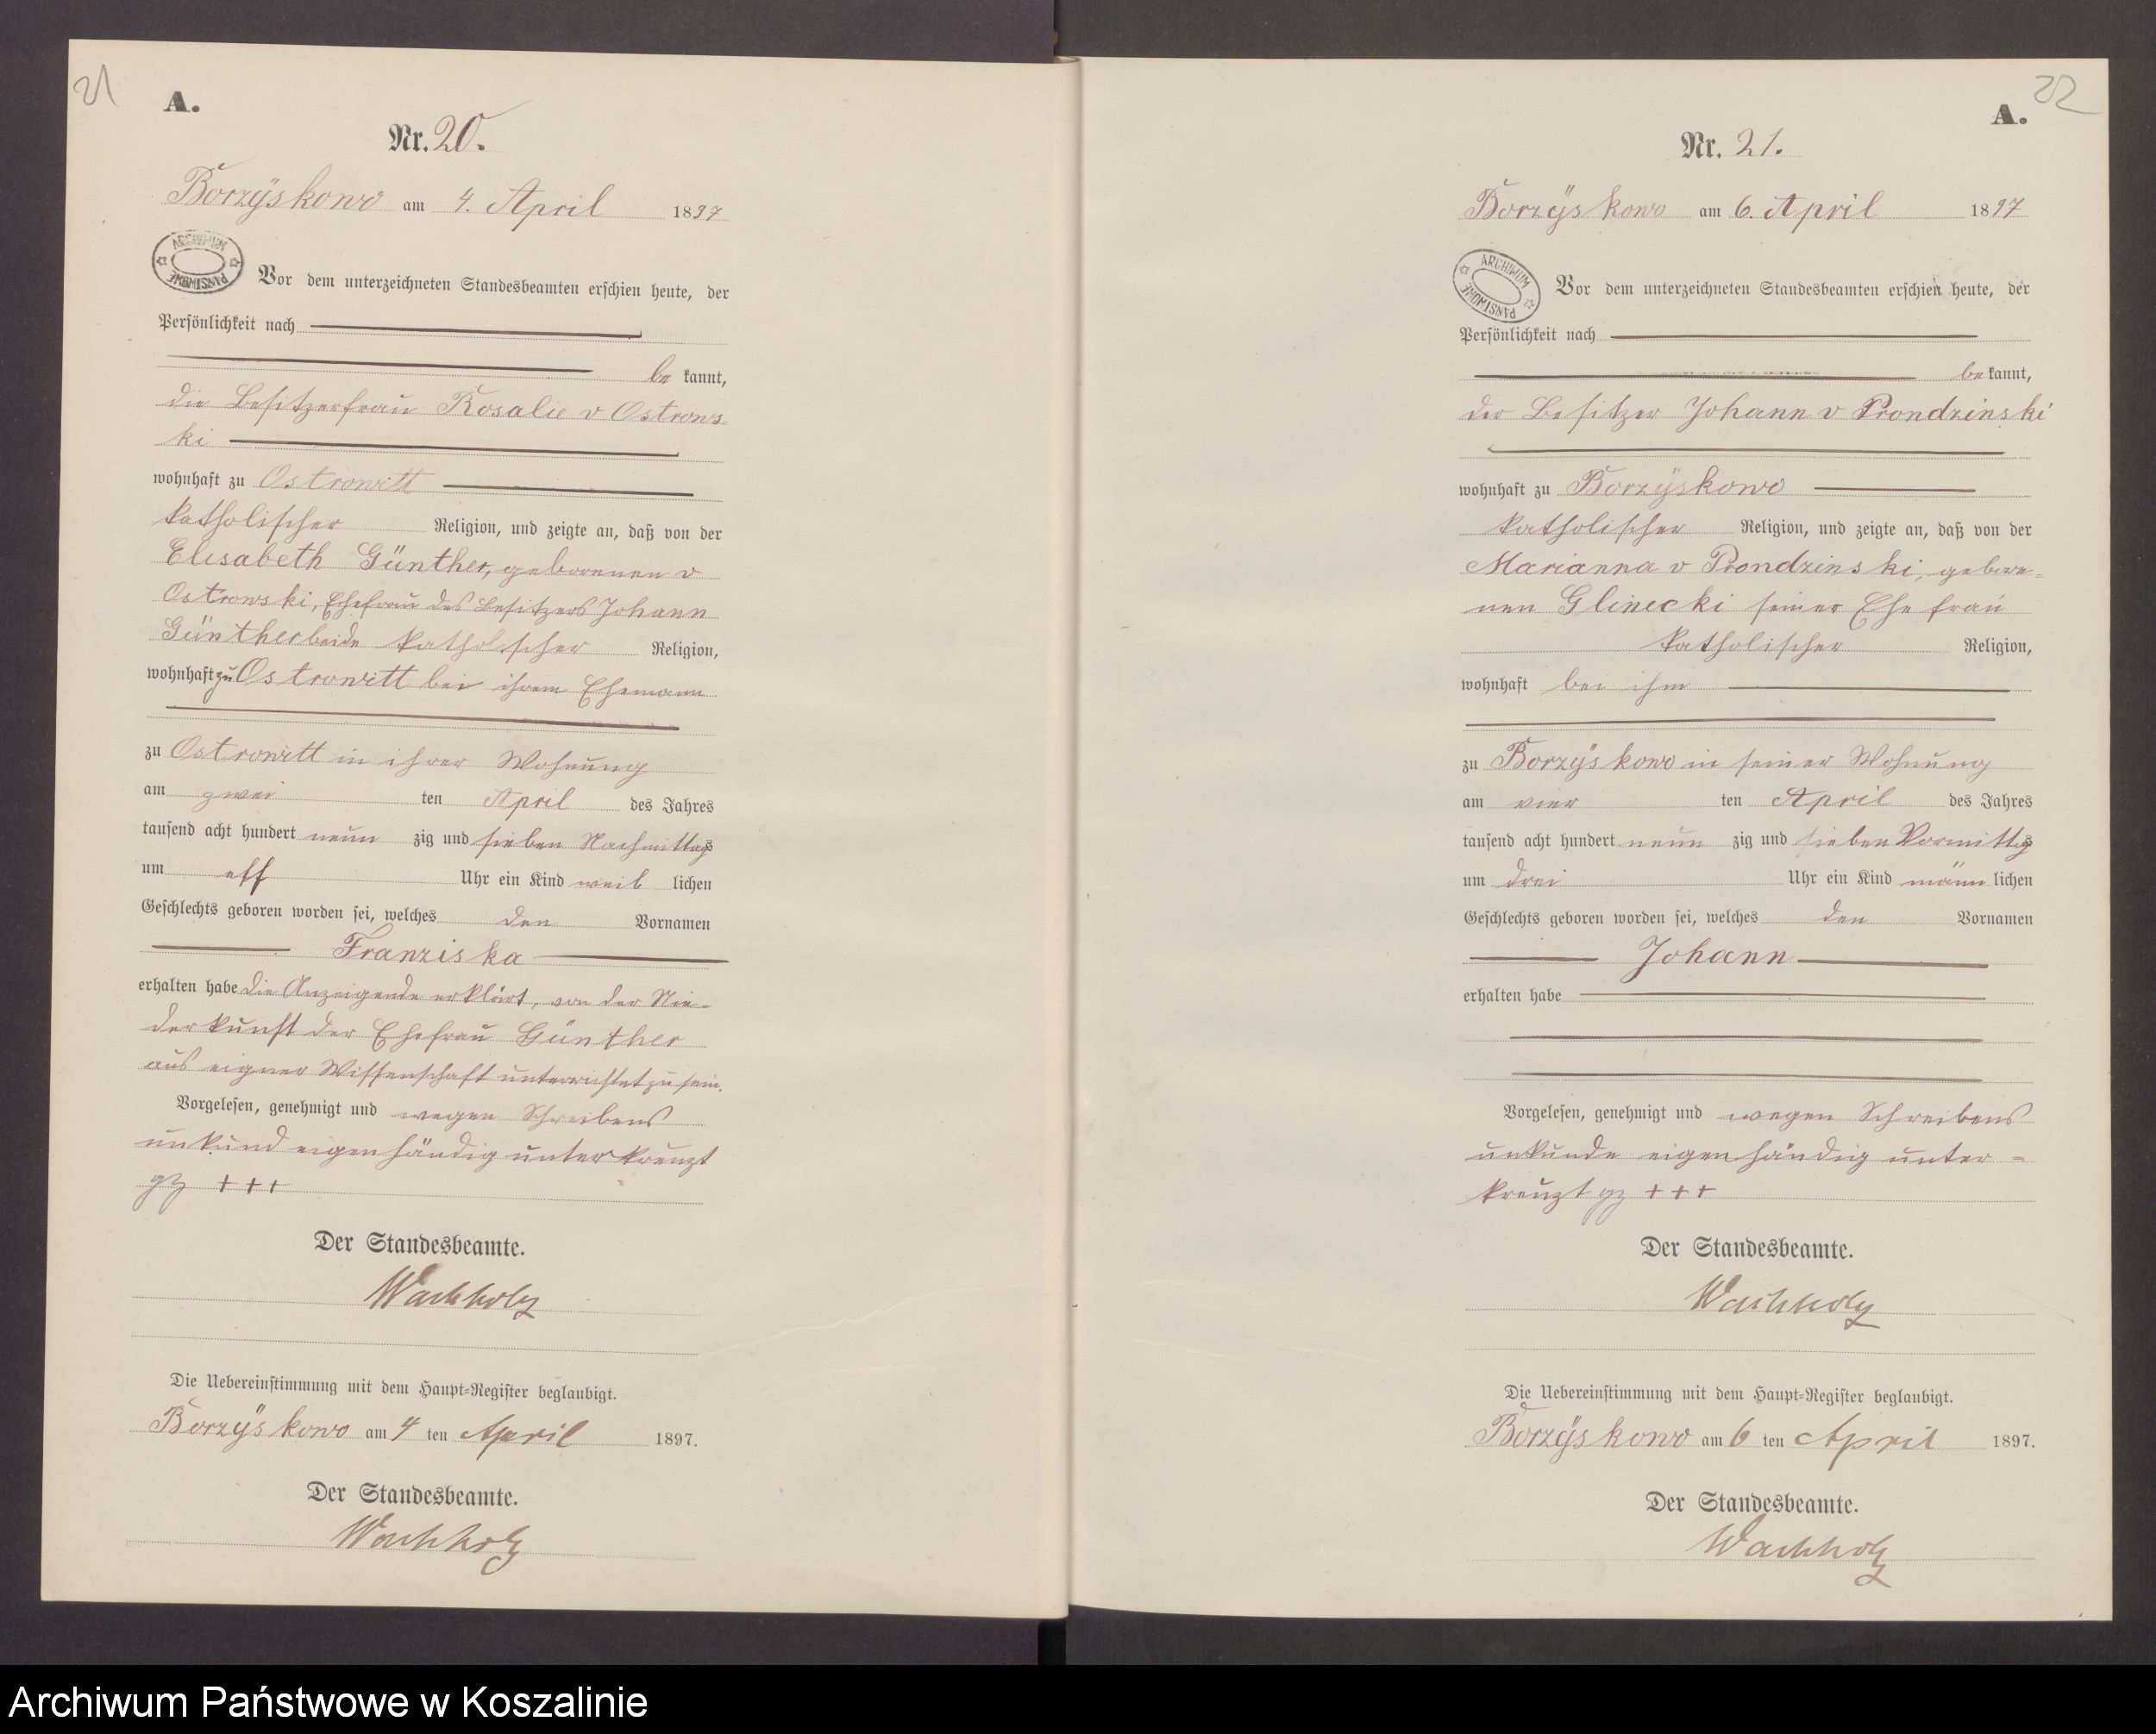 21
A.
Nr. 20.
Borzÿskowo am 4. April 1897
ARCHIWUM PAŃSTWOWE
Vor dem unterzeichneten Standesbeamten erschien heute, der
Persönlichkeit nach
be kannt,
die Besitzerfrau Rosalie v Ostrows
ki
wohnhaft zu Ostrowitt
katholischer Religion, und zeigte an, daß von der
Elisabeth Günther, geborenen v
Ostrowski, Ehefrau des Besitzers Johann
Günther beide katholischer Religion,
wohnhaft zu Ostrowitt bei ihrem Ehemann
zu Ostrowitt in ihrer Wohnung
am zwei ten April des Jahres
tausend acht hundert neun zig und sieben Nachmittags
um elf Uhr ein Kind weib lichen
Geschlechts geboren worden sei, welches den Vornamen
Franziska
erhalten habe die Anzeigende erklärt, von der Nie-
derkunft der Ehefrau Günther
aus eigner Wissenschaft unterrichtet zu sein.
Vorgelesen, genehmigt und wegen Schreibens
unkund eigenhändig unterkreuzt
gz +++
Der Standesbeamte.
Wachholz
Die Uebereinstimmung mit dem Haupt-Register beglaubigt.
Borzÿskowo am 4 ten April 1897.
Der Standesbeamte.
Wachholz
22
A.
Nr. 21.
Borzÿskowo am 6. April 1897
ARCHIWUM PAŃSTWOWE
Vor dem unterzeichneten Standesbeamten erschien heute, der
Persönlichkeit nach
be kannt,
der Besitzer Johann v Prondzinski
wohnhaft zu Borzÿskowo
katholischer Religion, und zeigte an, daß von der
Marianna v Prondzinski, gebore=
nen Glinecki seiner Ehefrau
katholischer Religion,
wohnhaft bei ihm
zu Borzÿskowo in seiner Wohnung
am vier ten April des Jahres
tausend acht hundert neun zig und sieben Vormittags
um drei Uhr ein Kind männ lichen
Geschlechts geboren worden sei, welches den Vornamen
Johann
erhalten habe
Vorgelesen, genehmigt und wegen Schreibens
unkunde eigenhändig unter=
kreuzt gz +++
Der Standesbeamte.
Wachholz
Die Uebereinstimmung mit dem Haupt-Register beglaubigt.
Borzÿskowo am 6 ten April 1897.
Der Standesbeamte.
Wachholz
Archiwum Państwowe w Koszalinie